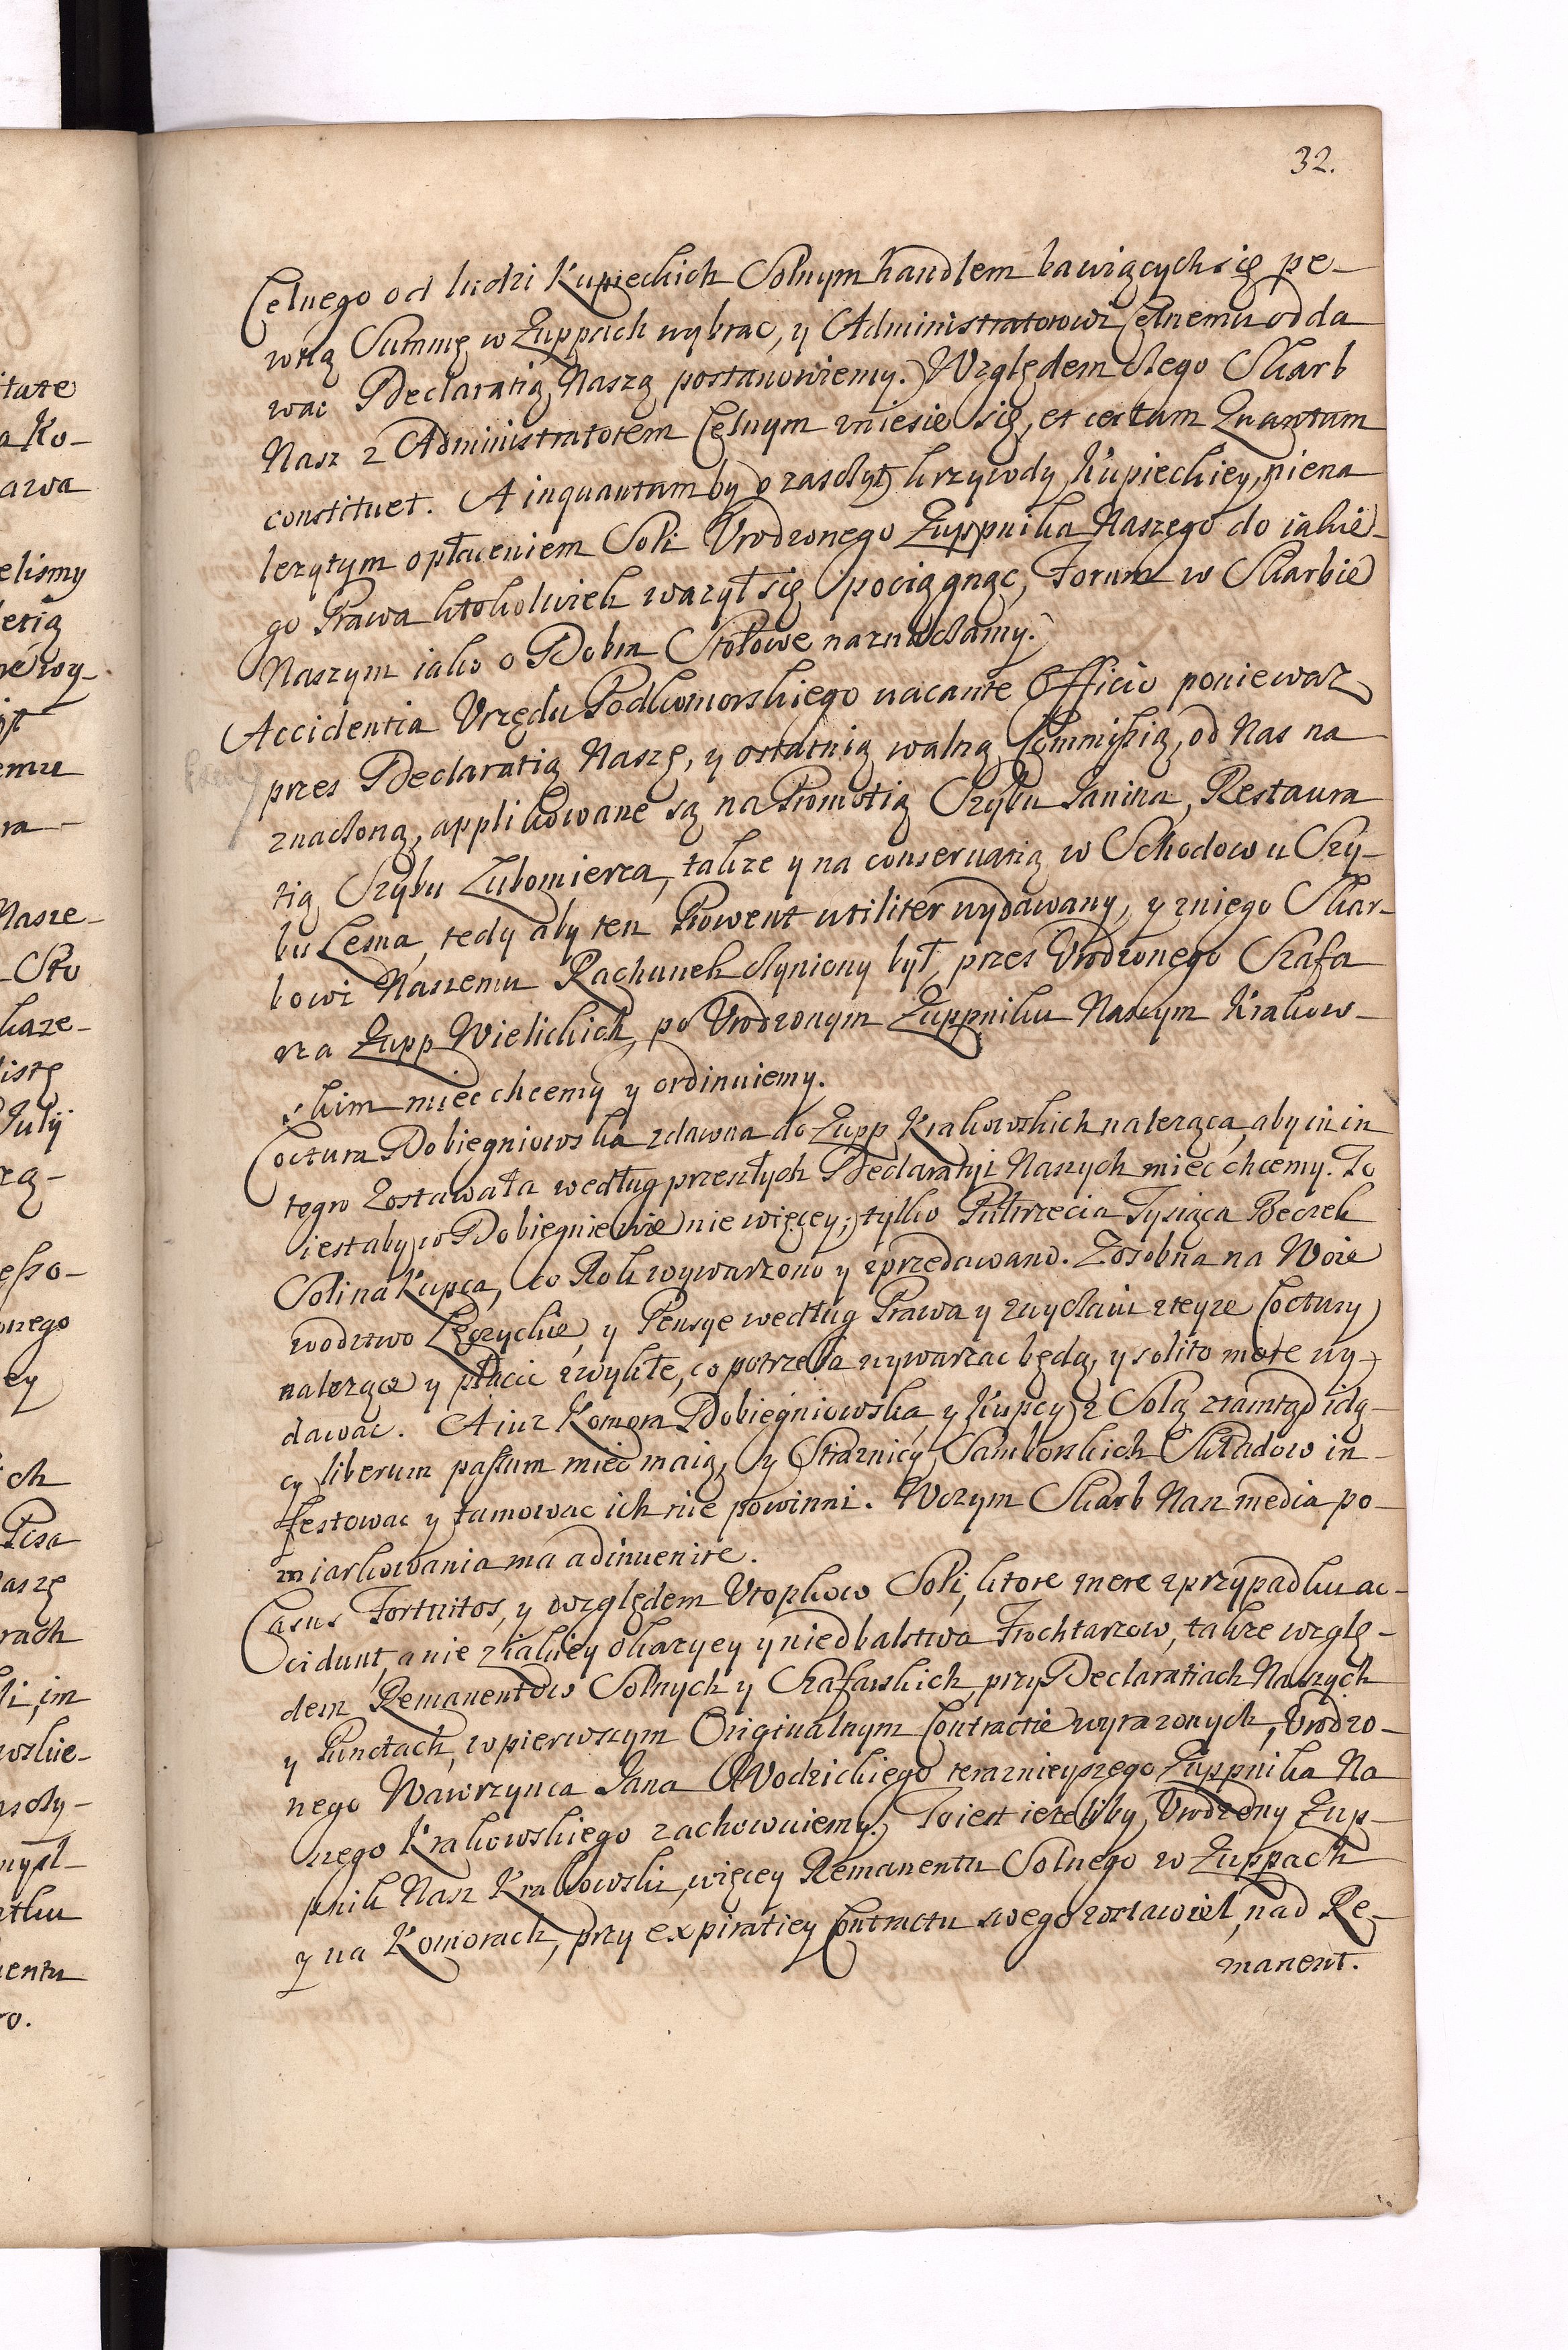 32.
Celnego od ludzi Kupieckich Solnym handlem bawiących się pe-
wną Summę w Zuppach wybrac, y Administratorowi Celnemu odda
wac Declaratią Naszą postanowiemy. Względem czego Skarb
Nasz z Administratorem Celnym zniesie się, et certam Quantum
constituet. A inquantum by o zaszczyt krzywdy Kupieckiey, niena
lezytym opłaceniem Soli Urodzonego Zuppnika Naszego do iakie-
go Prawa ktokolwiek wazył się pociągnąc, Forum w Skarbie
Naszym iako o Dobra Stołowe naznaczamy.
Accidentia Urzędu Podkomorskiego vacante Officio poniewaz
przes Declaratią Naszę, y ostatnią walną Commissią, od Nas na
znaczoną, applikowane są na Promotią Szybu Janina, Restaura
tią Szybu Lubomierza, takze y na conservatią w Schodow u Szy-
bu Leśna, tedy aby ten Prowent utiliter wydawany, y zniego Skar-
bowi Naszemu Rachunek czyniony był, przes Urodzonego Szafa
rza Zupp Wielickich, po Urodzonym Zuppniku Naszym Krakow-
skim miec chcemy y ordinuiemy.
Coctura Dobiegniowska zdawna do Zupp Krakowskich nalezaca, aby in in
tegro zostawała według przeszłych Declaratyi Naszych miec chcemy. To
iest aby w Dobiegniewie nie więcey; tylko Pułtrzecia Tysiąca Beczek
Soli na Kupca, co Rok wywarzono y zprzedawano. Zosobna na Woie
wodztwo Lęczyckie, y Pensye według Prawa y zwyczaiu zteyze Coctury
nalezące y płacic zwykłe, co potrzeba wywarzac będą, y solito more wy-
dawac. A iuz Komora Dobiegniowska, y Kupcy z Solą ztamtąd idą-
cy liberum passum miec maią, y Straznicy Samborskich Składow in-
festowac y tamowac ich nie powinni. Wczym Skarb Nasz media po-
miarkowania ma adinvenire.
Casus Fortuitos, y względem Utopkow Soli, ktore mere zprzypadku ac-
cidunt, a nie ziakiey okazyey y niedbalstwa Frochtarzow, takze wzglę-
dem Remanentow Solnych y Szafarskich, przy Declaratiach Naszych
y Punctach, w pierwszym Originalnym Contractie wyrazonych, Urodzo-
nego Wawrzynca Jana Wodzickiego teraznieyszego Zuppnika Na
szego Krakowskiego zachowuiemy. To iest iezeliby Urodzony Zup-
pnik Nasz Krakowski, więcey Remanentu Solnego w Zuppach
y na Komorach, przy expiratiey Contractu swego zostawieł, nad Re-
manent.